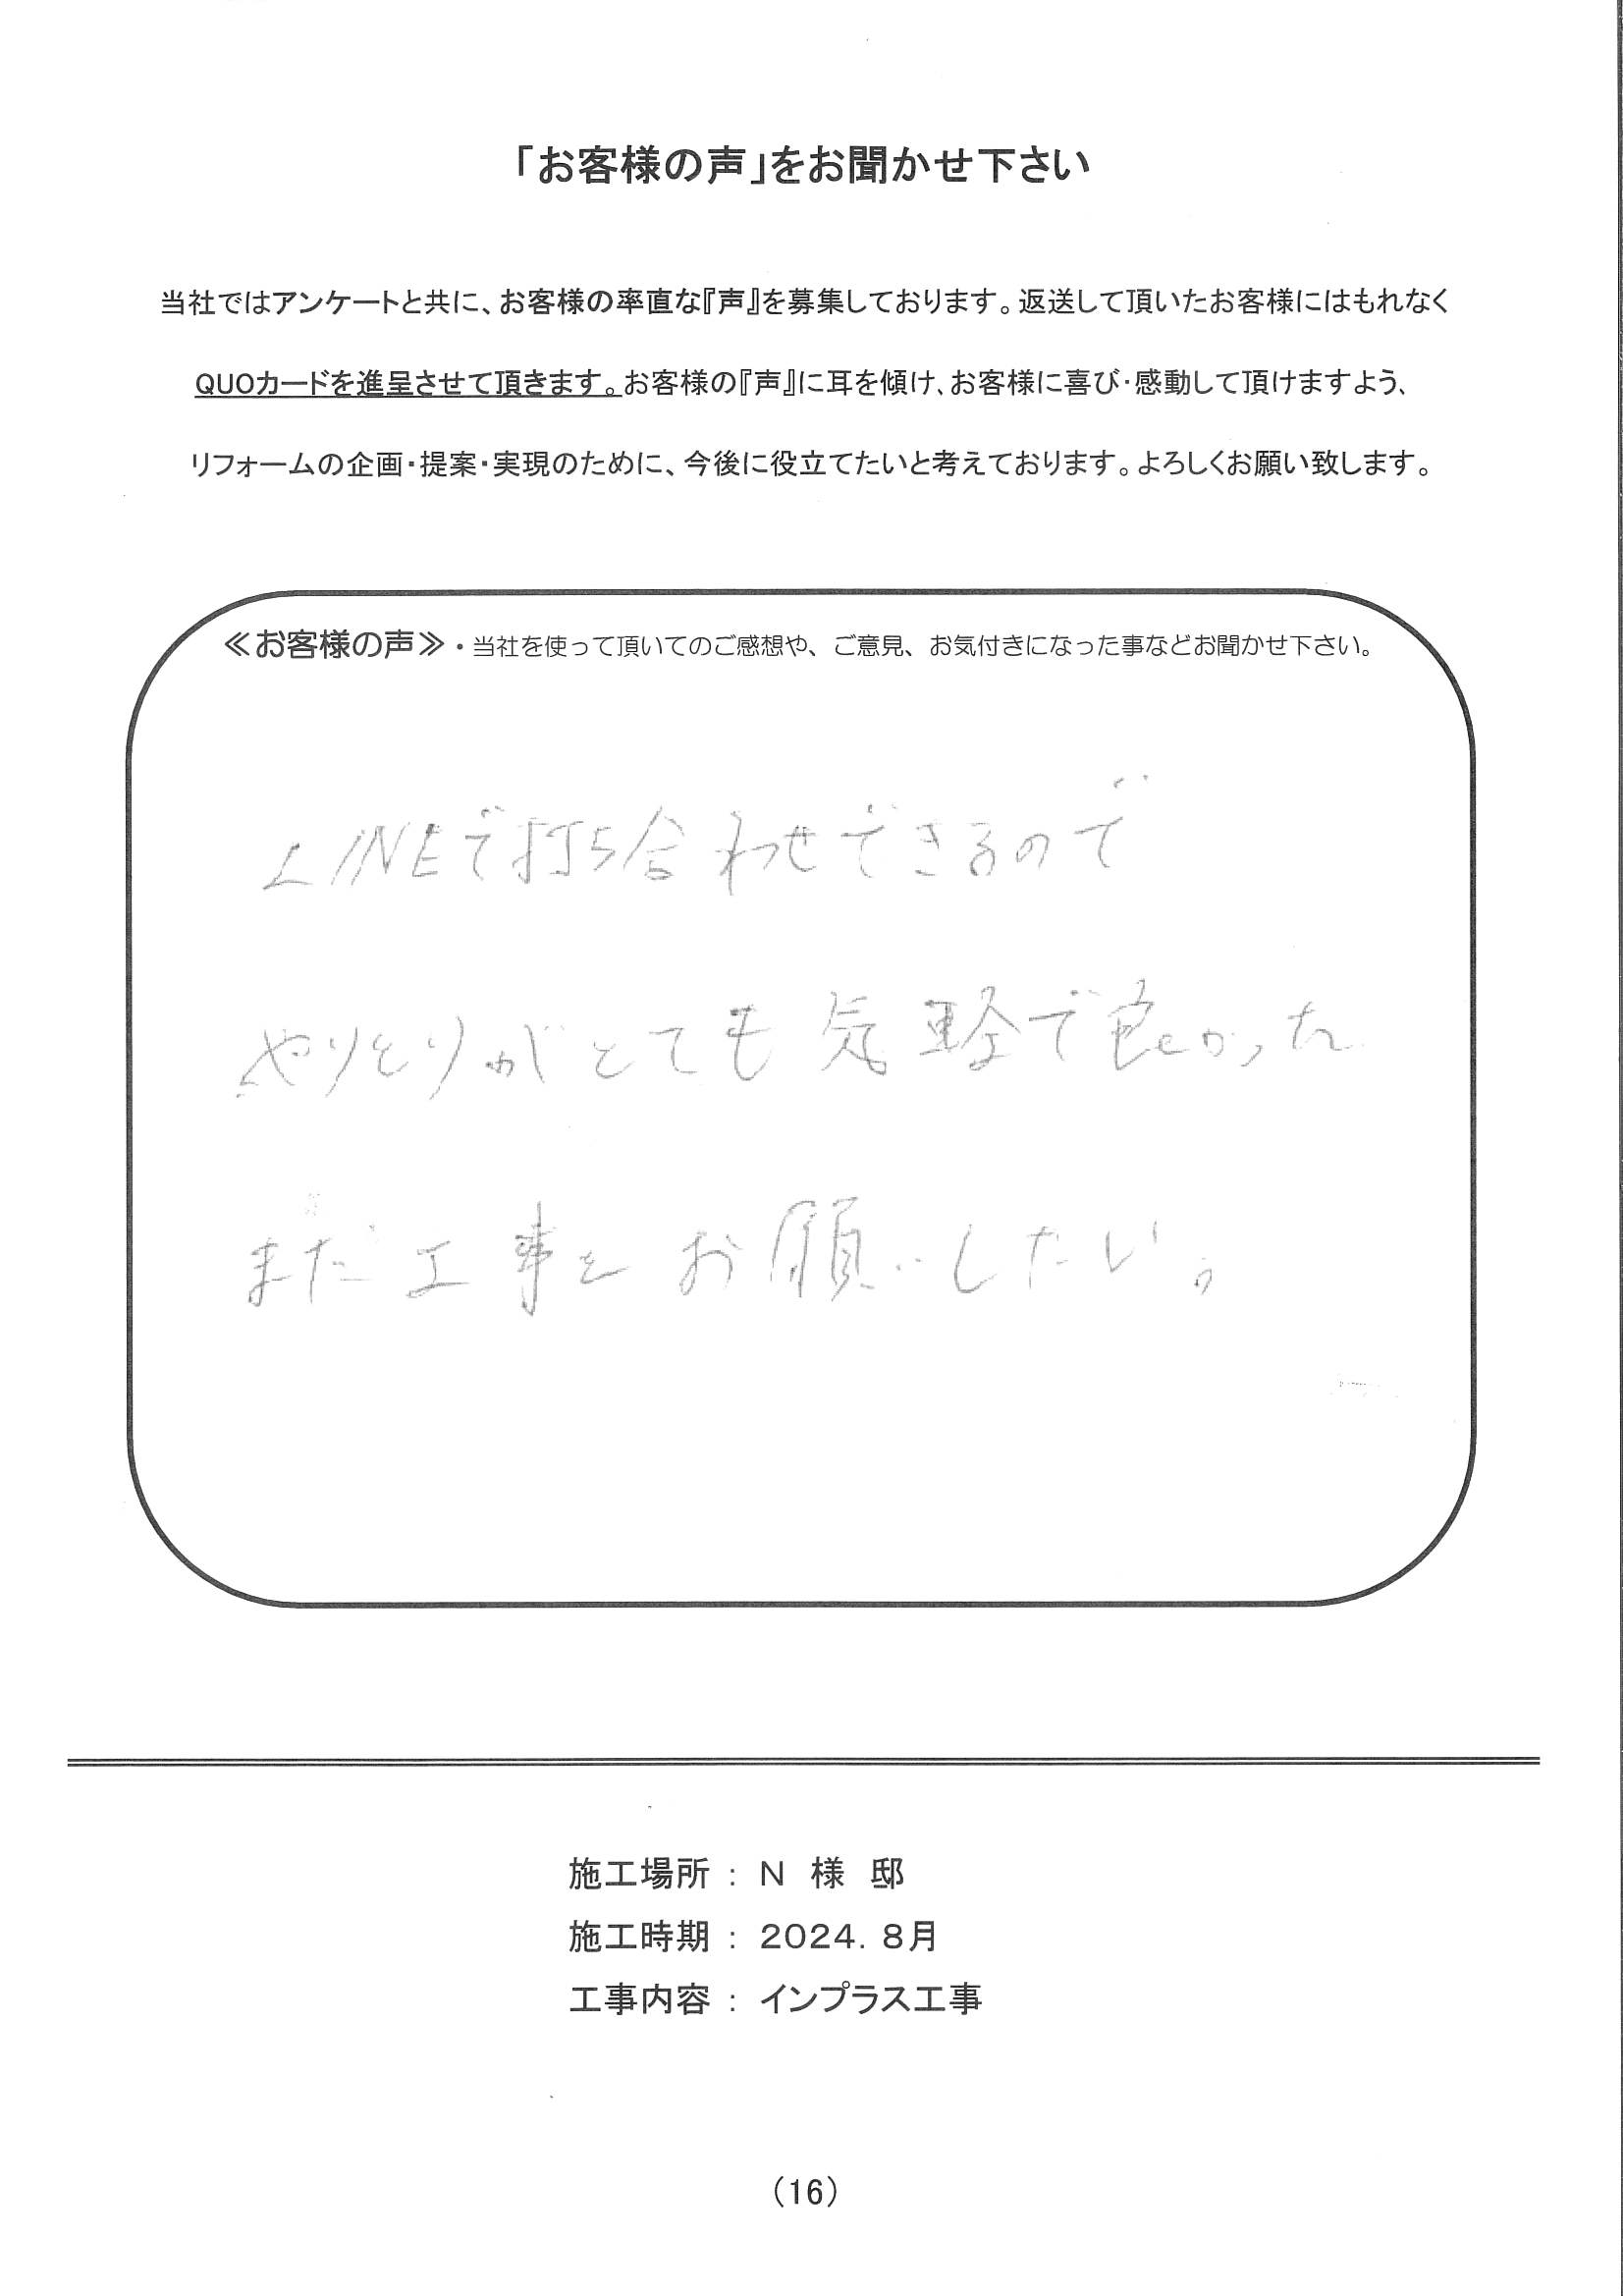 「お客様の声」をお聞かせ下さい
当社ではアンケートと共に、お客様の率直な『声』を募集しております。返送して頂いたお客様にはもれなく
QUOカードを進呈させて頂きます。お客様の『声』に耳を傾け、お客様に喜び・感動して頂けますよう、
リフォームの企画・提案・実現のために、今後に役立てたいと考えております。よろしくお願い致します。
≪お客様の声≫・当社を使って頂いてのご感想や、ご意見、お気付きになった事などお聞かせ下さい。
LINEで打ち合わせできるので
やりとりがとても気軽で良かった
また工事をお願いしたい。
施工場所 : N 様 邸
施工時期 : 2024. 8月
工事内容 : インプラス工事
(16)